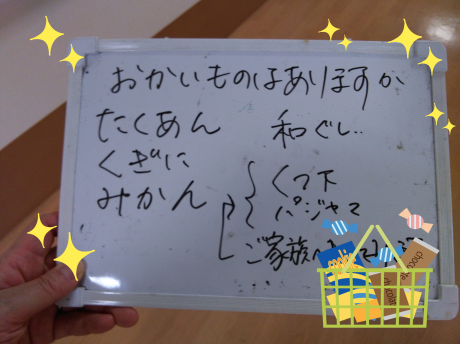 おかいものはありますか
たくあん
くぎに
みかん
和ぐし..
くつ下
パジャマ
ご家族へ